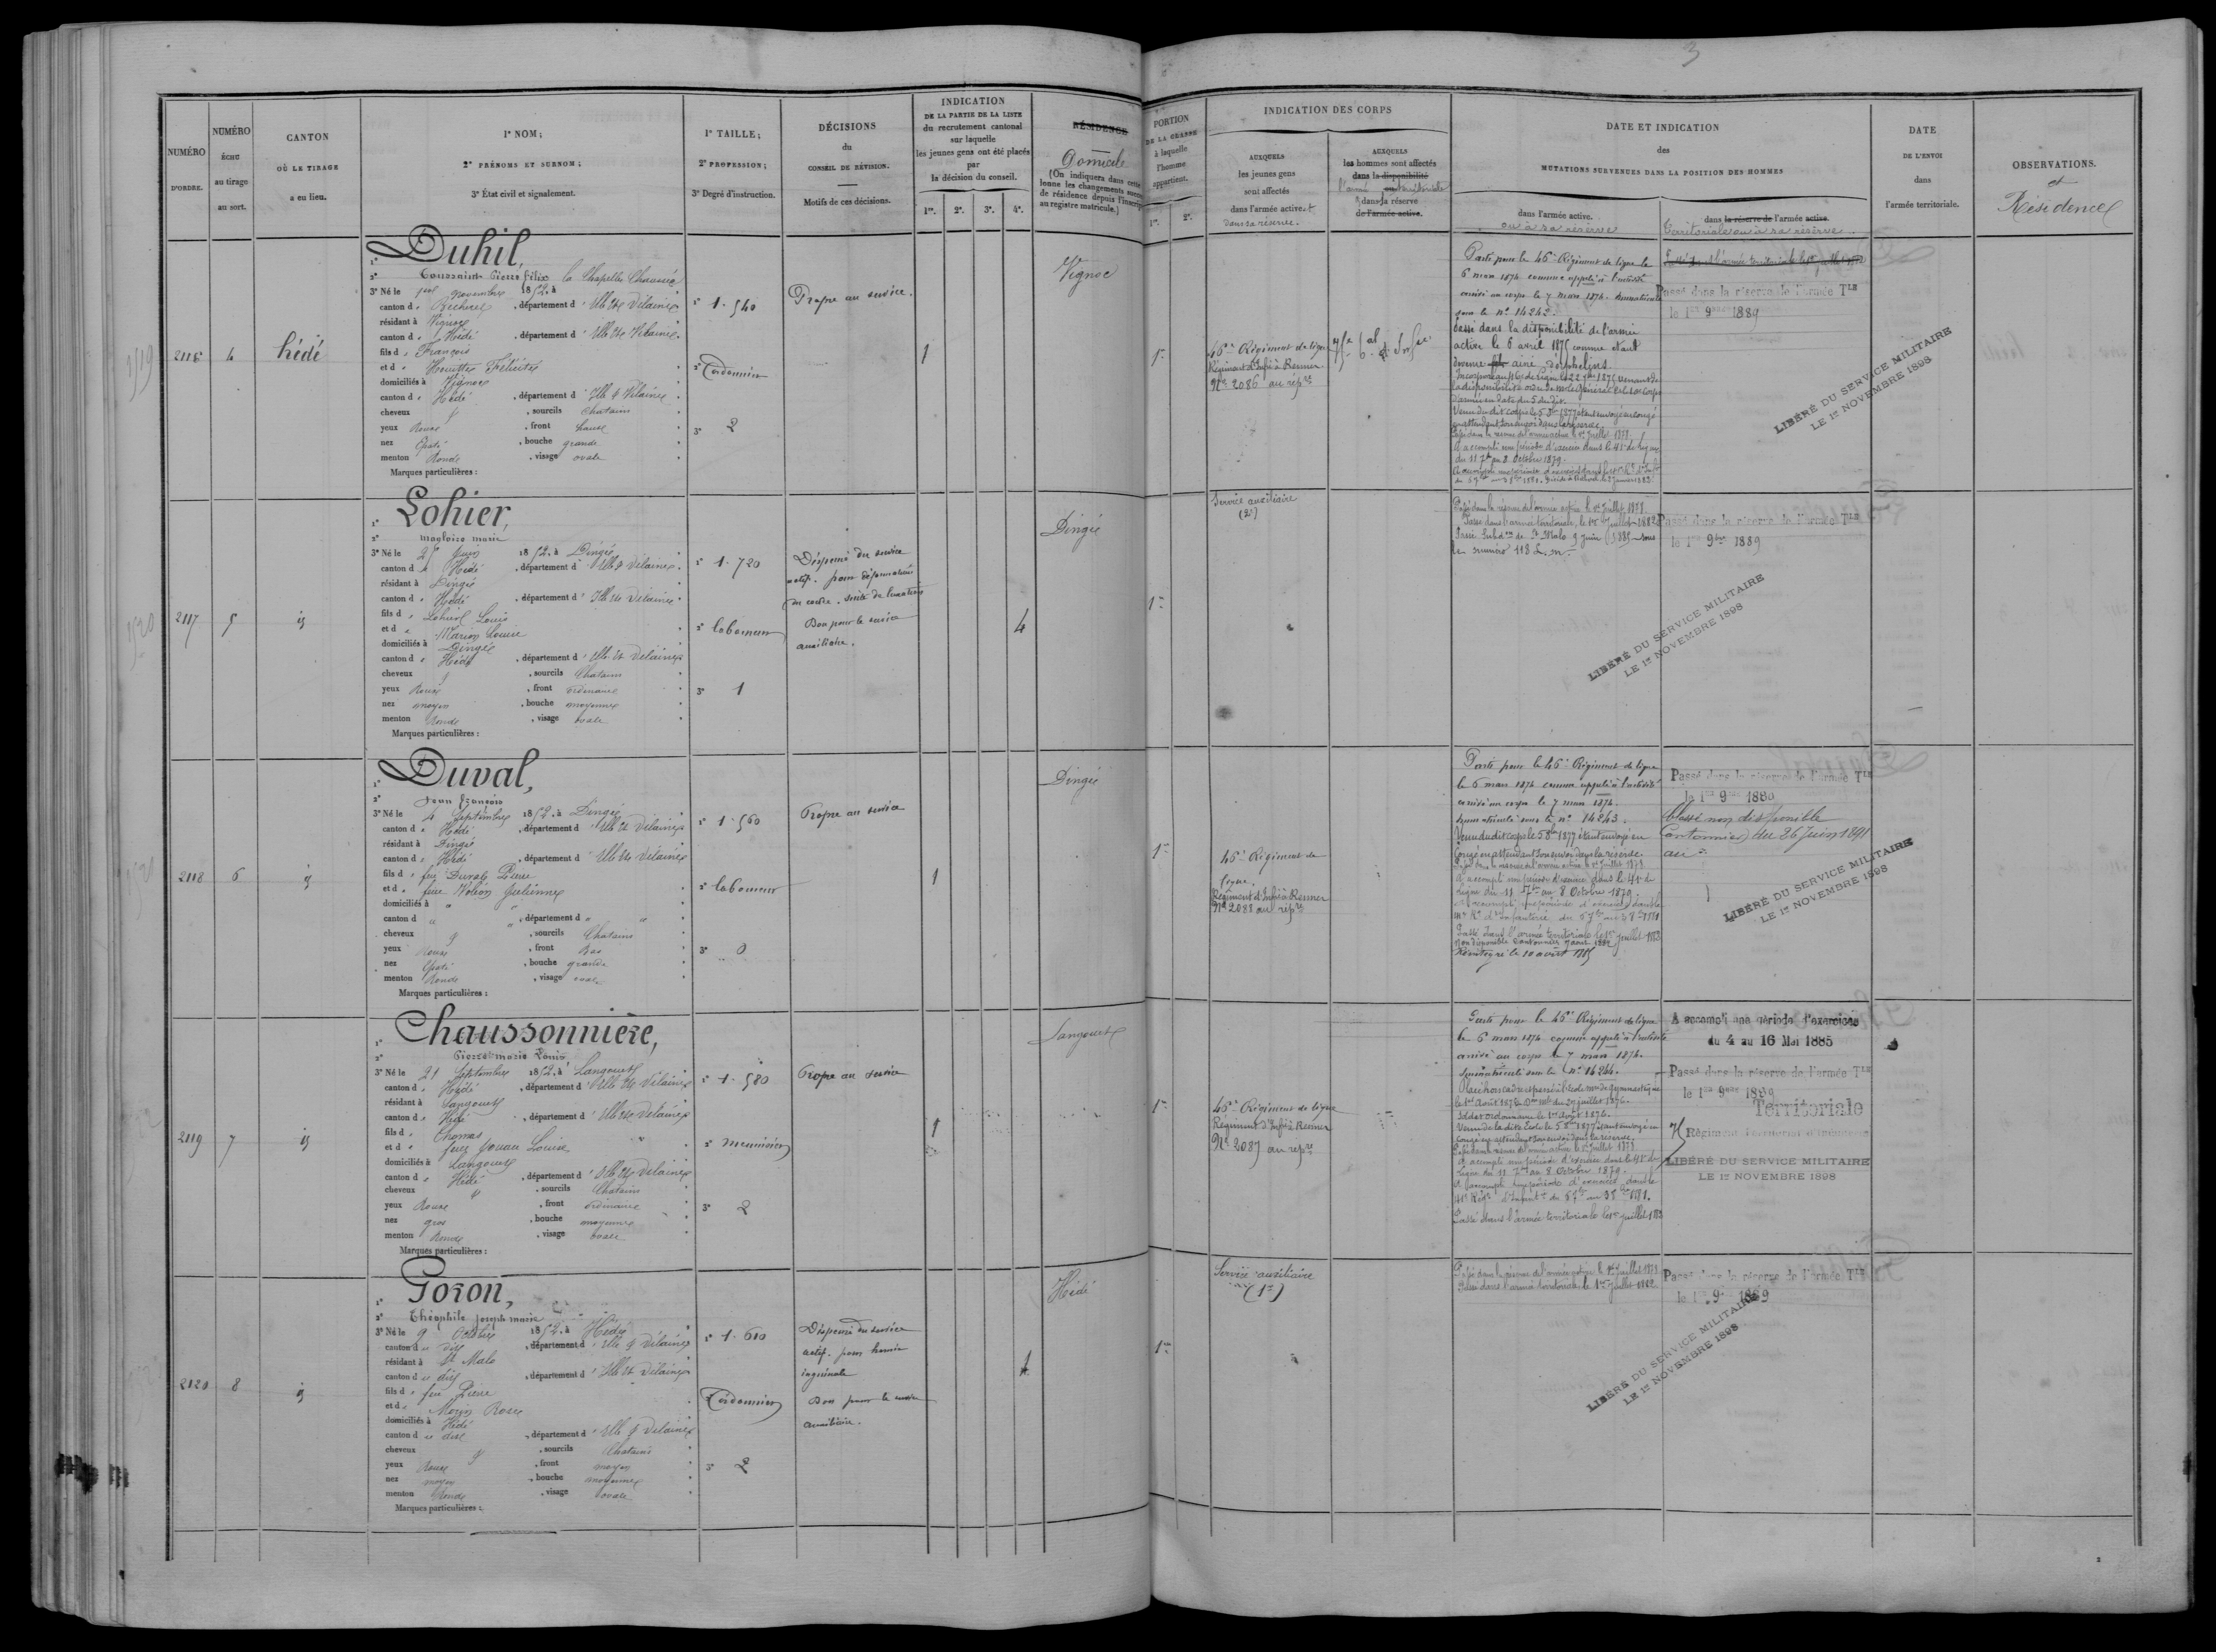 3
NUMÉRO
D'ORDRE.
NUMÉRO
ÉCHU
au tirage
au sort.
CANTON
OÙ LE TIRAGE
a eu lieu.
1° NOM;
2° PRÉNOMS ET SURNOM;
3° État civil et signalement.
1° TAILLE;
2° PROFESSION;
3° Degré d'instruction.
DÉCISIONS
du
CONSEIL DE RÉVISION.
Motifs de ces décisions.
INDICATION
DE LA PARTIE DE LA LISTE
du recrutement cantonal
sur laquelle
les jeunes gens ont été placés
par
la décision du conseil.
1re. 2e. 3e. 4e.
RÉSIDENCE
Domicile
(On indiquera dans cette
lonne les changements succes
de résidence depuis l'inscrip
au registre matricule.)
PORTION
DE LA CLASSE
à laquelle
l'homme
appartient.
1re. 2e.
INDICATION DES CORPS
AUXQUELS
les jeunes gens
sont affectés
dans l'armée active et
dans sa réserve.
AUXQUELS
les hommes sont affectés
dans la disponibilité
l'armée territoriale
dans la réserve
de l'armée active.
DATE ET INDICATION
des
MUTATIONS SURVENUES DANS LA POSITION DES HOMMES
dans l'armée active.
ou à sa réserve
dans la réserve de l'armée active.
Territoriale ou à sa réserve.
DATE
DE L'ENVOI
dans
l'armée territoriale.
OBSERVATIONS.
et
Résidence
2116 4 Hédé
1° Duhil,
2° Toussaint Pierre Félix
3° Né le 1er novembre 1852, à la Chapelle Chaussée
canton de Bécherel, département d'Ille et Vilaine
résidant à Vignoc
canton de Hédé, département d'Ille et Vilaine
fils de François
et de Houitte Félicité
domiciliés à Vignoc
canton de Hédé, département d'Ille & Vilaine
cheveux , sourcils Chatains
yeux Roux , front
nez Épaté , bouche grande
menton Ronde , visage ovale
Marques particulières :
1° 1.540
2° Cordonnier
3° 2
Propre au service.
1
Vignoc
1re
46e Régiment de ligne
Régiment d'Infie à Rennes
No 2086 au répre
Parti pour le 46e Régiment de ligne le
6 mars 1874 comme appelé à l'activité
arrivé au corps le 7 mars 1874. Immatriculé
sous le no 14242.
Passé dans la disponibilité de l'armée
active le 6 avril 1875 comme étant
devenu fils ainé d'orphelins.
Passé dans la réserve de l'armée active le 1er Juillet 1878.
A accompli une période d'exercices dans le 41e de ligne
du 11 7bre au 8 Octobre 1879.
Passé dans l'armée territoriale le 1er juillet
Passé dans la réserve de l'armée Tle
le 1er 9bre 1889
LIBÉRÉ DU SERVICE MILITAIRE
LE 1er NOVEMBRE 1898
2117 5 id
1° Lohier,
2° Magloire Marie
3° Né le 25 Juin 1852, à Dingé
canton de Hédé, département d'Ille & Vilaine
résidant à Dingé
canton de Hédé, département d'Ille et Vilaine
fils de Lohier Louis
et de Marion Louise
domiciliés à Dingé
canton de Hédé, département d'Ille et Vilaine
cheveux , sourcils Chatains
yeux Roux , front ordinaire
nez moyen , bouche moyenne
menton Ronde , visage ovale
Marques particulières :
1° 1.720
2° laboureur
3° 1
Dispensé du service
actif. pour déformation
du coude. suite de luxation
Bon pour le service
auxiliaire.
4
Dingé
1re
Service auxiliaire
(2e)
Passé dans la réserve de l'armée active le 1er Juillet 1878.
Passé dans l'armée territoriale, le 1er juillet 1882
Passé Subdon de St Malo 9 Juin 1885 sous
le numéro 118 L.m.
Passé dans la réserve de l'armée Tle
le 1er 9bre 1889
LIBÉRÉ DU SERVICE MILITAIRE
LE 1er NOVEMBRE 1898
2118 6 id
1° Duval,
2° Jean François
3° Né le 4 Septembre 1852, à Dingé
canton de Hédé, département d'Ille et Vilaine
résidant à Dingé
canton de Hédé, département d'Ille et Vilaine
fils de feu Duval Pierre
et de feue Julienne
domiciliés à "
canton d " , département d "
cheveux , sourcils Chatains
yeux Roux , front Bas
nez Épaté , bouche grande
menton Ronde , visage ovale
Marques particulières :
1° 1.560
2° laboureur
3° 0
Propre au service
1
Dingé
1re
46e Régiment de
ligne.
Régiment d'Infie à Rennes
No 2088 au répre
Parti pour le 46e Régiment de ligne
le 6 mars 1874 comme appelé à l'activité
arrivé au corps le 7 mars 1874.
Immatriculé sous le no 14243.
Venu dudit corps le 5 8bre 1877 étant envoyé en
Congé en attendant son envoi dans la réserve.
Passé dans la réserve de l'armée active le 1er Juillet 1878.
A accompli une période d'exercice dans le 41e de
Ligne du 11 7bre au 8 Octobre 1879.
Passé dans l'armée territoriale le 1er juillet 1882
Non disponible Cantonnier 7 août 1882
Réintégré le 10 avril 1885
Passé dans la réserve de l'armée Tle
le 1er 9bre 1880
Classé non disponible
Cantonnier du 26 Juin 1891
au
LIBÉRÉ DU SERVICE MILITAIRE
LE 1er NOVEMBRE 1898
2119 7 id
1° Chaussonnière,
2° Pierre Marie Louis
3° Né le 21 Septembre 1852, à Langouet
canton de Hédé, département d'Ille et Vilaine
résidant à Langouet
canton de Hédé, département d'Ille et Vilaine
fils de Thomas
et de feue Jouan Louise
domiciliés à Langouet
canton de Hédé, département d'Ille et Vilaine
cheveux , sourcils Chatains
yeux Roux , front ordinaire
nez gros , bouche moyenne
menton Ronde , visage ovale
Marques particulières :
1° 1.580
2° meunier
3° 2
Propre au service
1
Langouet
1re
46e Régiment de ligne
Régiment d'Infie à Rennes
No 2087 au répre
Parti pour le 46e Régiment de ligne
le 6 mars 1874 comme appelé à l'activité
arrivé au corps le 7 mars 1874.
Immatriculé sous le no 14244.
Soldat ordonnance le 1er Août 1876.
Venu de ladite École le 5 8bre 1877 étant envoyé en
congé en attendant son envoi dans la réserve.
Passé dans la réserve de l'armée active le 1er Juillet 1878
A accompli une période d'exercice dans le 41e de
Ligne du 11 7bre au 8 Octobre 1879.
Passé dans l'armée territoriale le 1er juillet 1882
A accompli une période d'exercices
du 4 au 16 Mai 1885
Passé dans la réserve de l'armée Tle
le 1er 9bre 1889
Territoriale
LIBÉRÉ DU SERVICE MILITAIRE
LE 1er NOVEMBRE 1898
2120 8 id
1° Goron,
2° Théophile Joseph Marie
3° Né le 9 Octobre 1852, à Hédé
canton du dit, département d'Ille & Vilaine
résidant à St Malo
canton du dit, département d'Ille et Vilaine
fils de feu Pierre
et de Morin Rose
domiciliés à Hédé
canton du dit, département d'Ille & Vilaine
cheveux , sourcils Chatains
yeux Roux , front moyen
nez moyen , bouche moyenne
menton Ronde , visage ovale
Marques particulières :
1° 1.610
2° Cordonnier
3° 2
Dispensé du service
actif. pour hernie
inguinale
Bon pour le service
auxiliaire.
4
Hédé
1re
Service auxiliaire
(1er)
Passé dans la réserve de l'armée active le 1er Juillet 1878
Passé dans l'armée territoriale le 1er Juillet 1882
Passé dans la réserve de l'armée Tle
le 1er 9bre 1889
LIBÉRÉ DU SERVICE MILITAIRE
LE 1er NOVEMBRE 1898